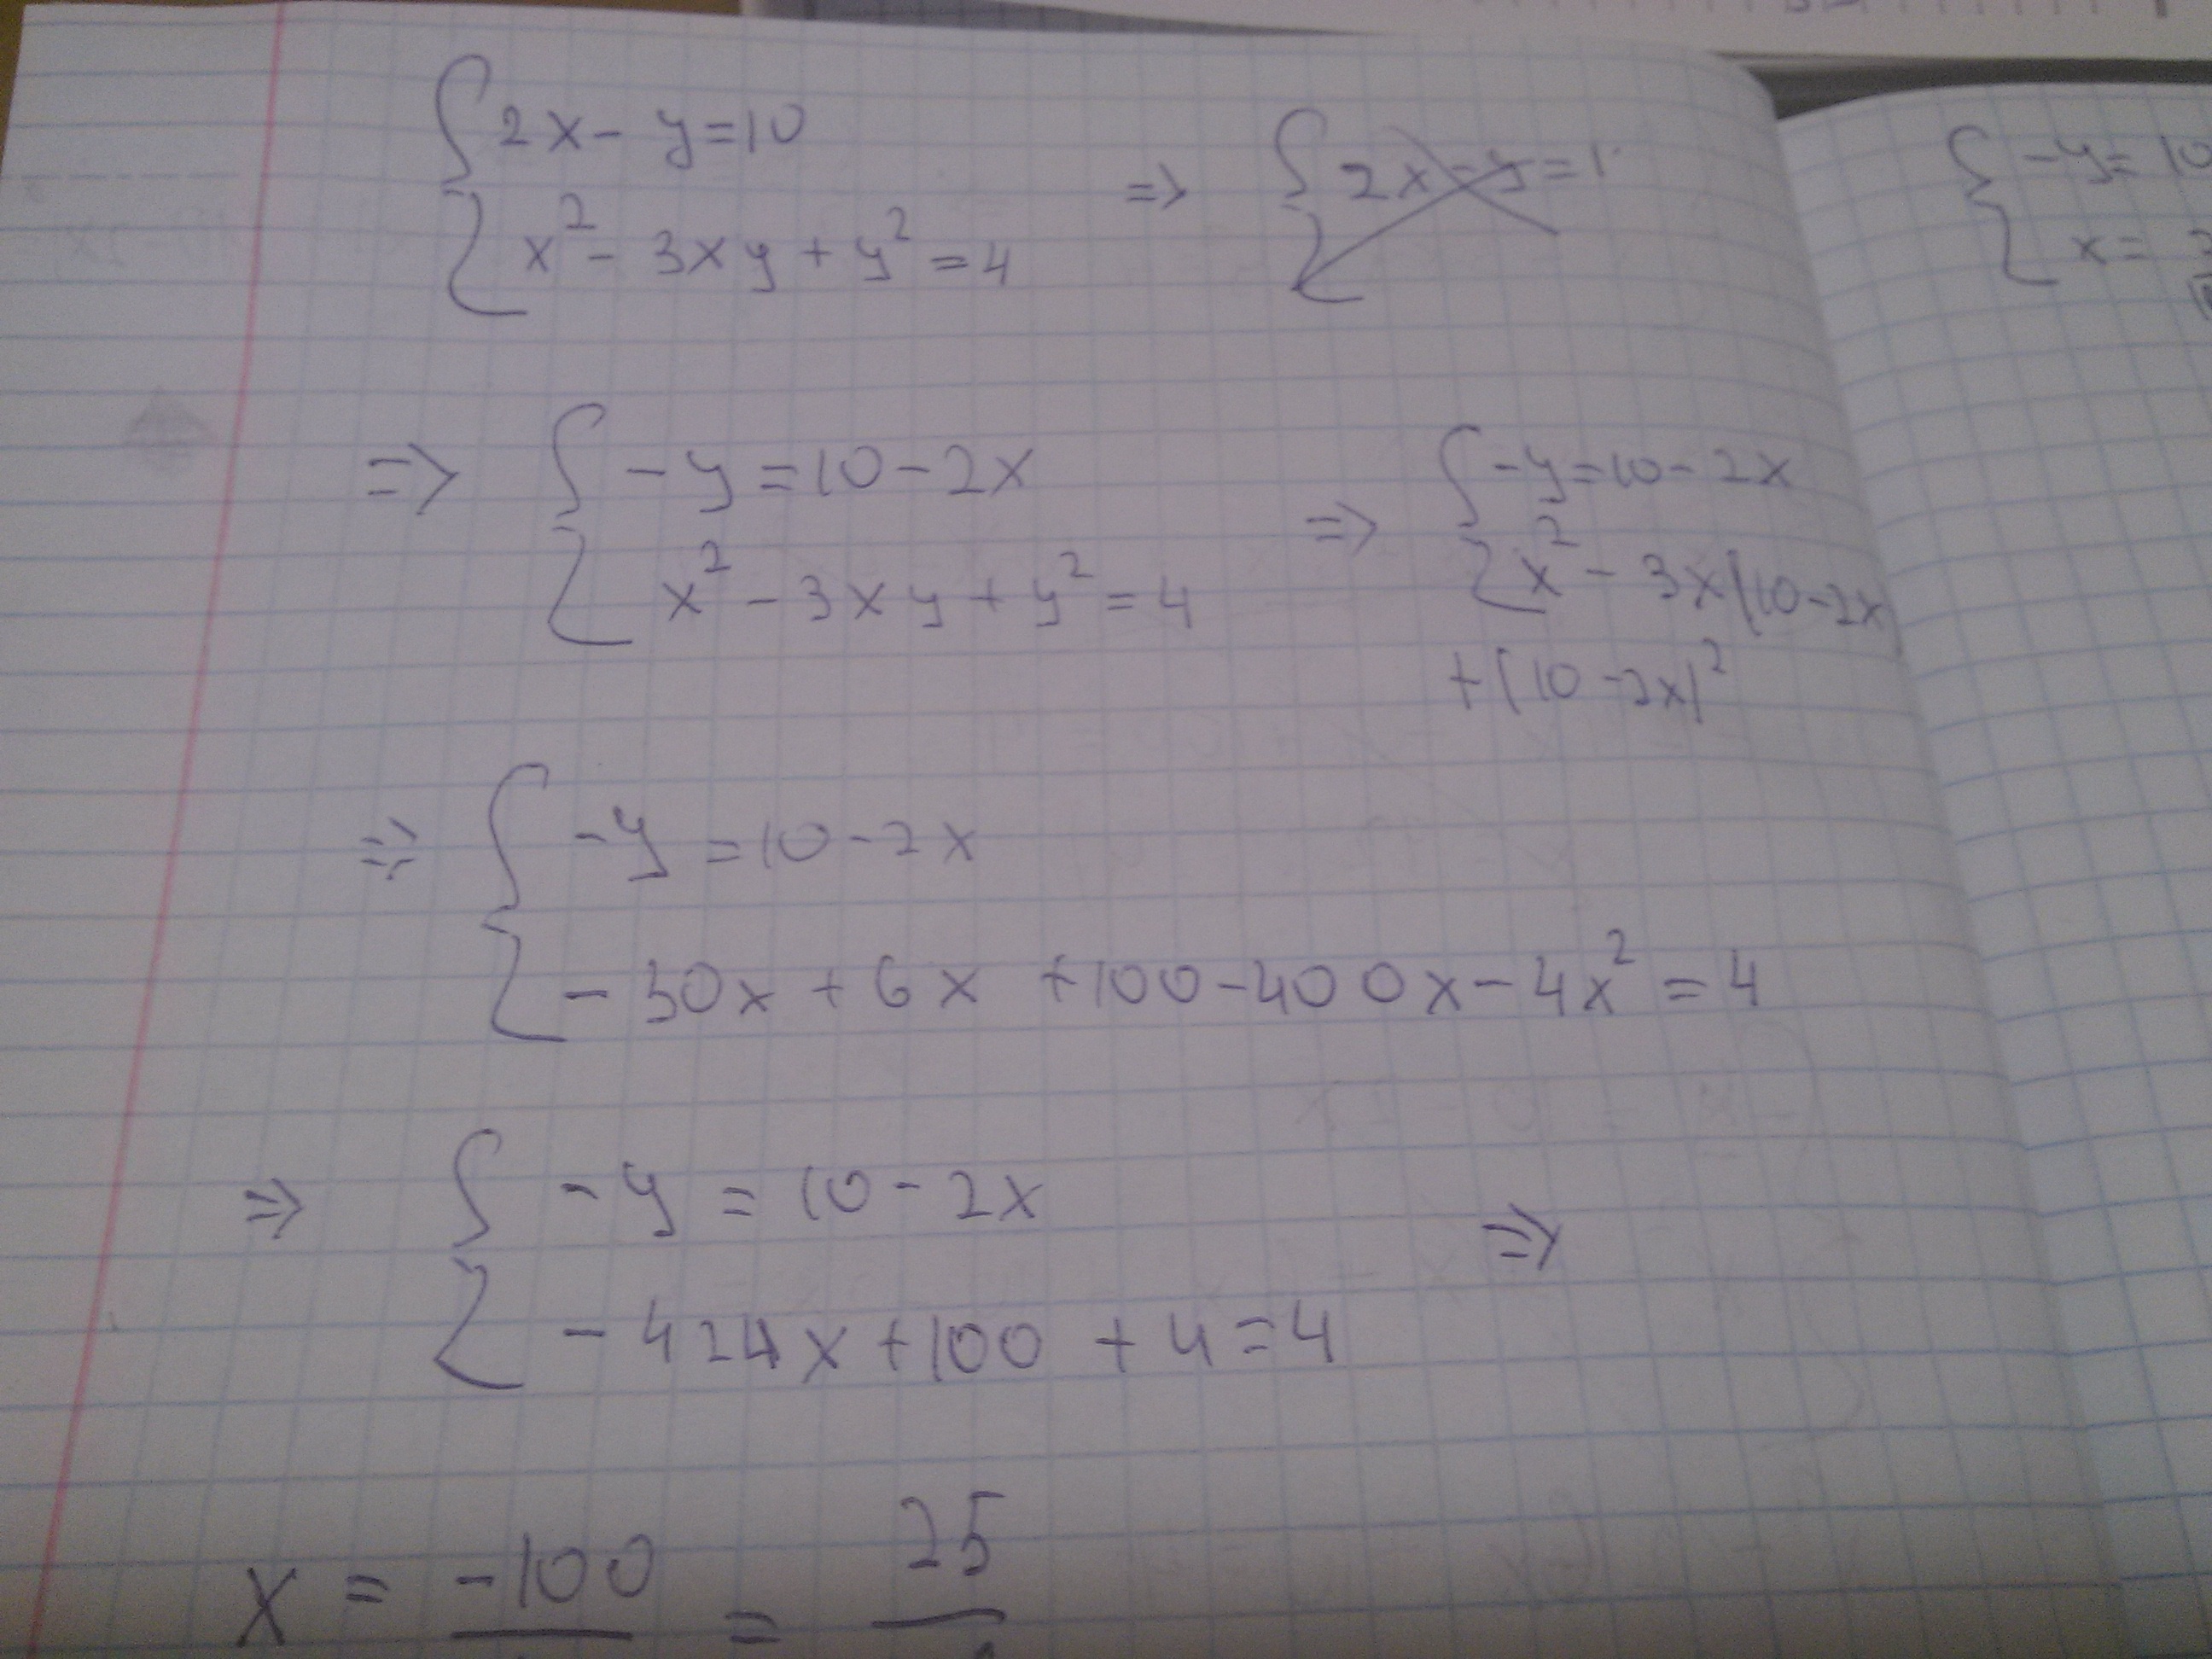 { 2x - y = 10
{ x² - 3xy + y² = 4
=> { 2x - y = 1
=> { -y = 10 - 2x
{ x² - 3xy + y² = 4
=> { -y = 10 - 2x
{ x² - 3x(10 - 2x
+ (10 - 2x)²
=> { -y = 10 - 2x
{ - 30x + 6x + 100 - 400x - 4x² = 4
=> { -y = 10 - 2x
{ - 424x + 100 + 4 = 4
=>
x = -100 = 25
{ -y = 10
{ x =